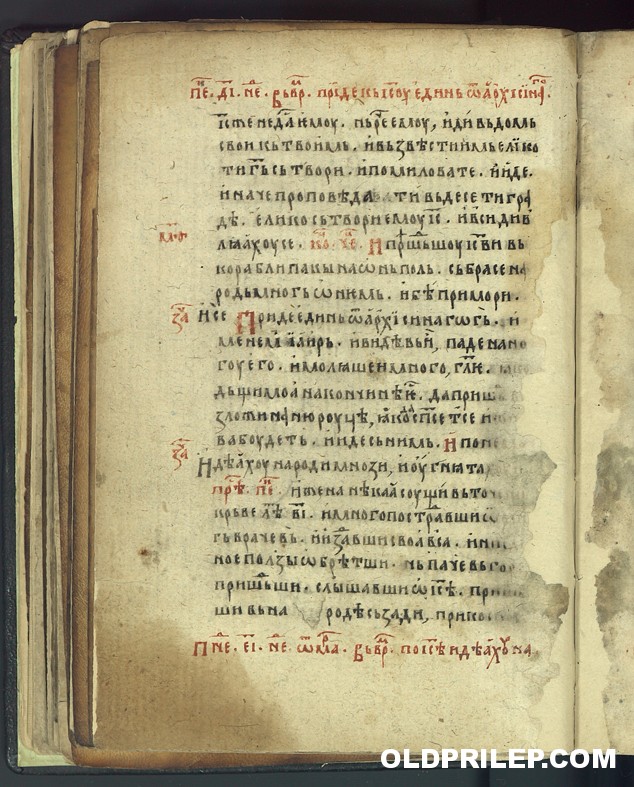 пе҃. д҃і. не҃. в вр҃. прїиде къ іс҃оу единь ѿ архїсїнаго
іс҃ же не да ѥмоу. нь рече ѥмоу, иди въ домь
свои къ твоимь. и възвѣсти имь елїко
ти г҃ь сътвори. и помилова те. и иде.
и наче проповѣдати въ десети гра
дѣ. елико сътвори ѥмоу іс҃. и вси див
лꙗхоу се. ко҃. че҃. И прѣшьшоу іс҃ви вь
корабли пакы на ѡнь поль. събра се на
родь многь ѡ нѥмь. и бѣ при мори.
за҃ И се Приде единь ѿ архїсинагогь.
мене іаирь. и видѣвь и, паде на но
гоу его. и молꙗше и много, гл҃ѥ.
дъщи моа на кончинѣ ѥ. да пришь
зложи на ню роуцѣ, ꙗко да сп҃се т се и
ва боудеть. и иде съ нимь. И по н
за҃ Идѣахоу народи мнози, и оугнѣта
прѣ. пе҃. и жена нѣкаа соущи вь то
крьве лѣ҃ в҃і. и много пострⷣавши
гь врачевь. и изⷣавши своа вса. и ни
ное ползы ѡбрѣтши. нь паче вь го
пришьши. слышавши ѡ іс҃ѣ. при
ши вь на родѣ съзади, прико
Пне҃. е҃і. не҃. ѿ мⷬа. в вр҃. по іс҃ѣ идѣахоу на
OLDPRILEP.COM